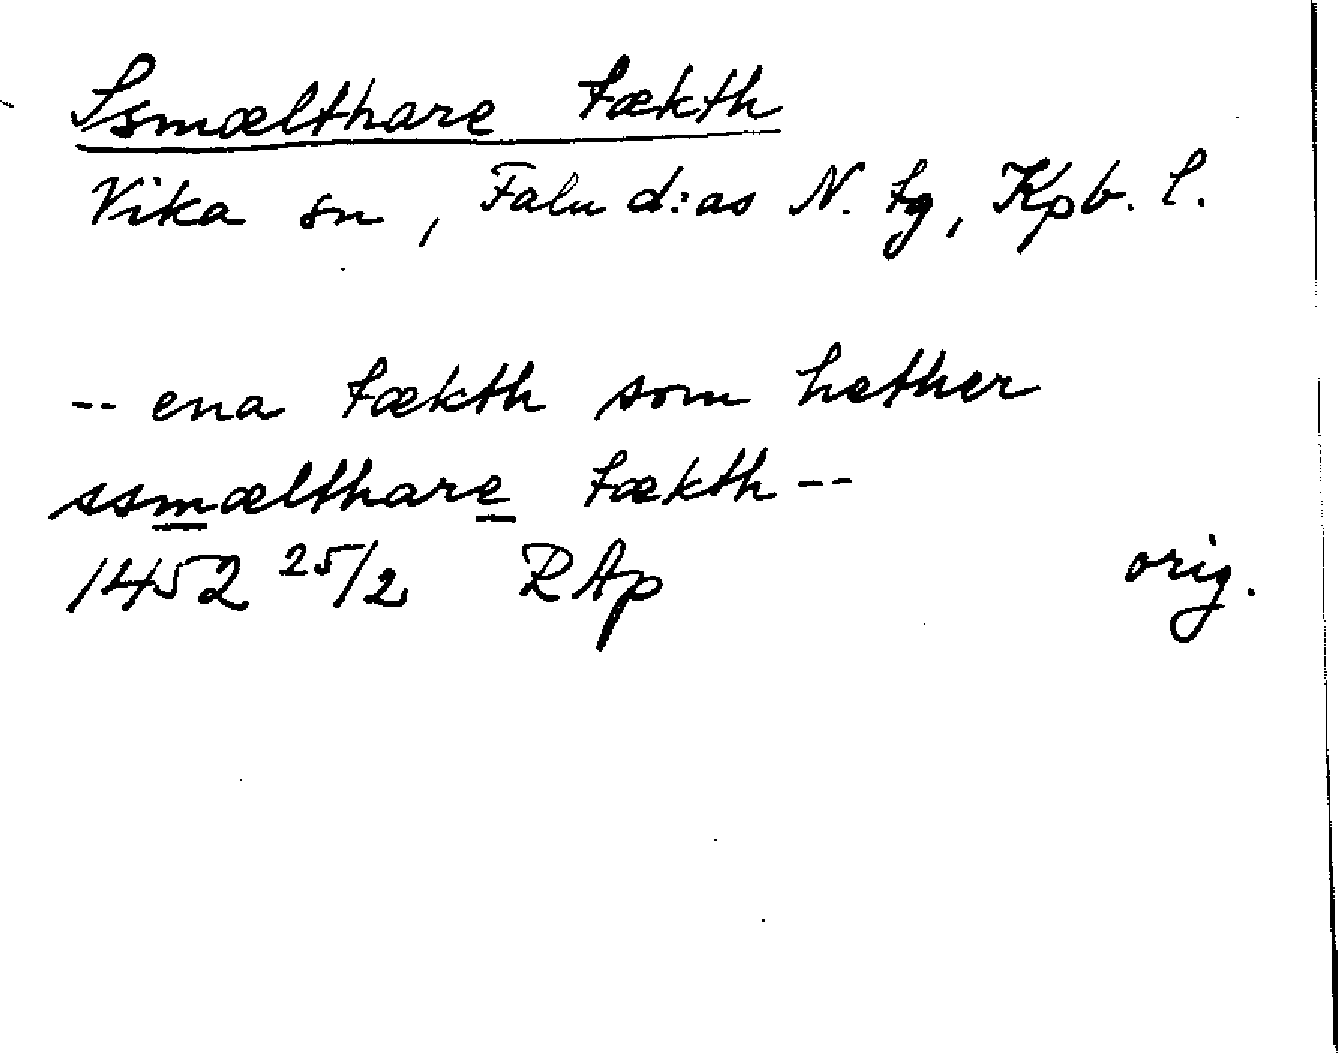 Ssmælthare tækth
Vika sn, Falu d:as N. tg, Kpb. l.
-- ena tækth som hether
ssmælthare tækth --
1452 25/2 RAp orig.